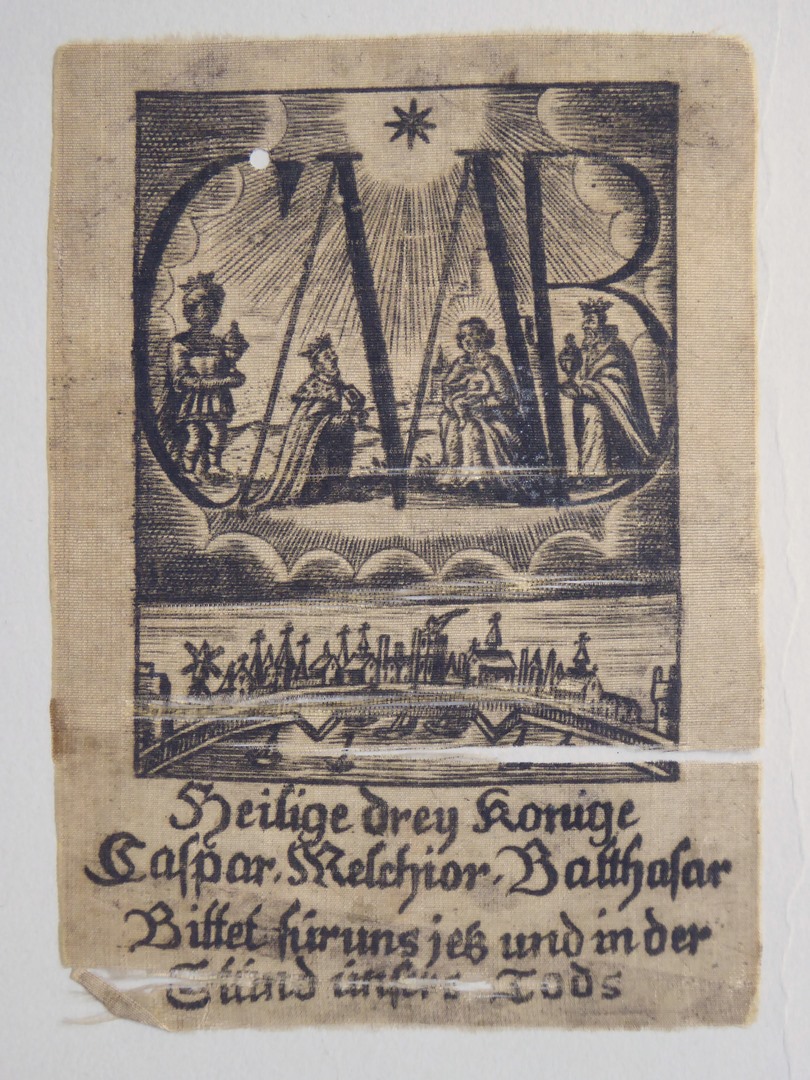 CMB
Heilige drey Konige
Caspar. Melchior. Balthasar
Bittet für uns jetz und in der
Stund unsers Tods